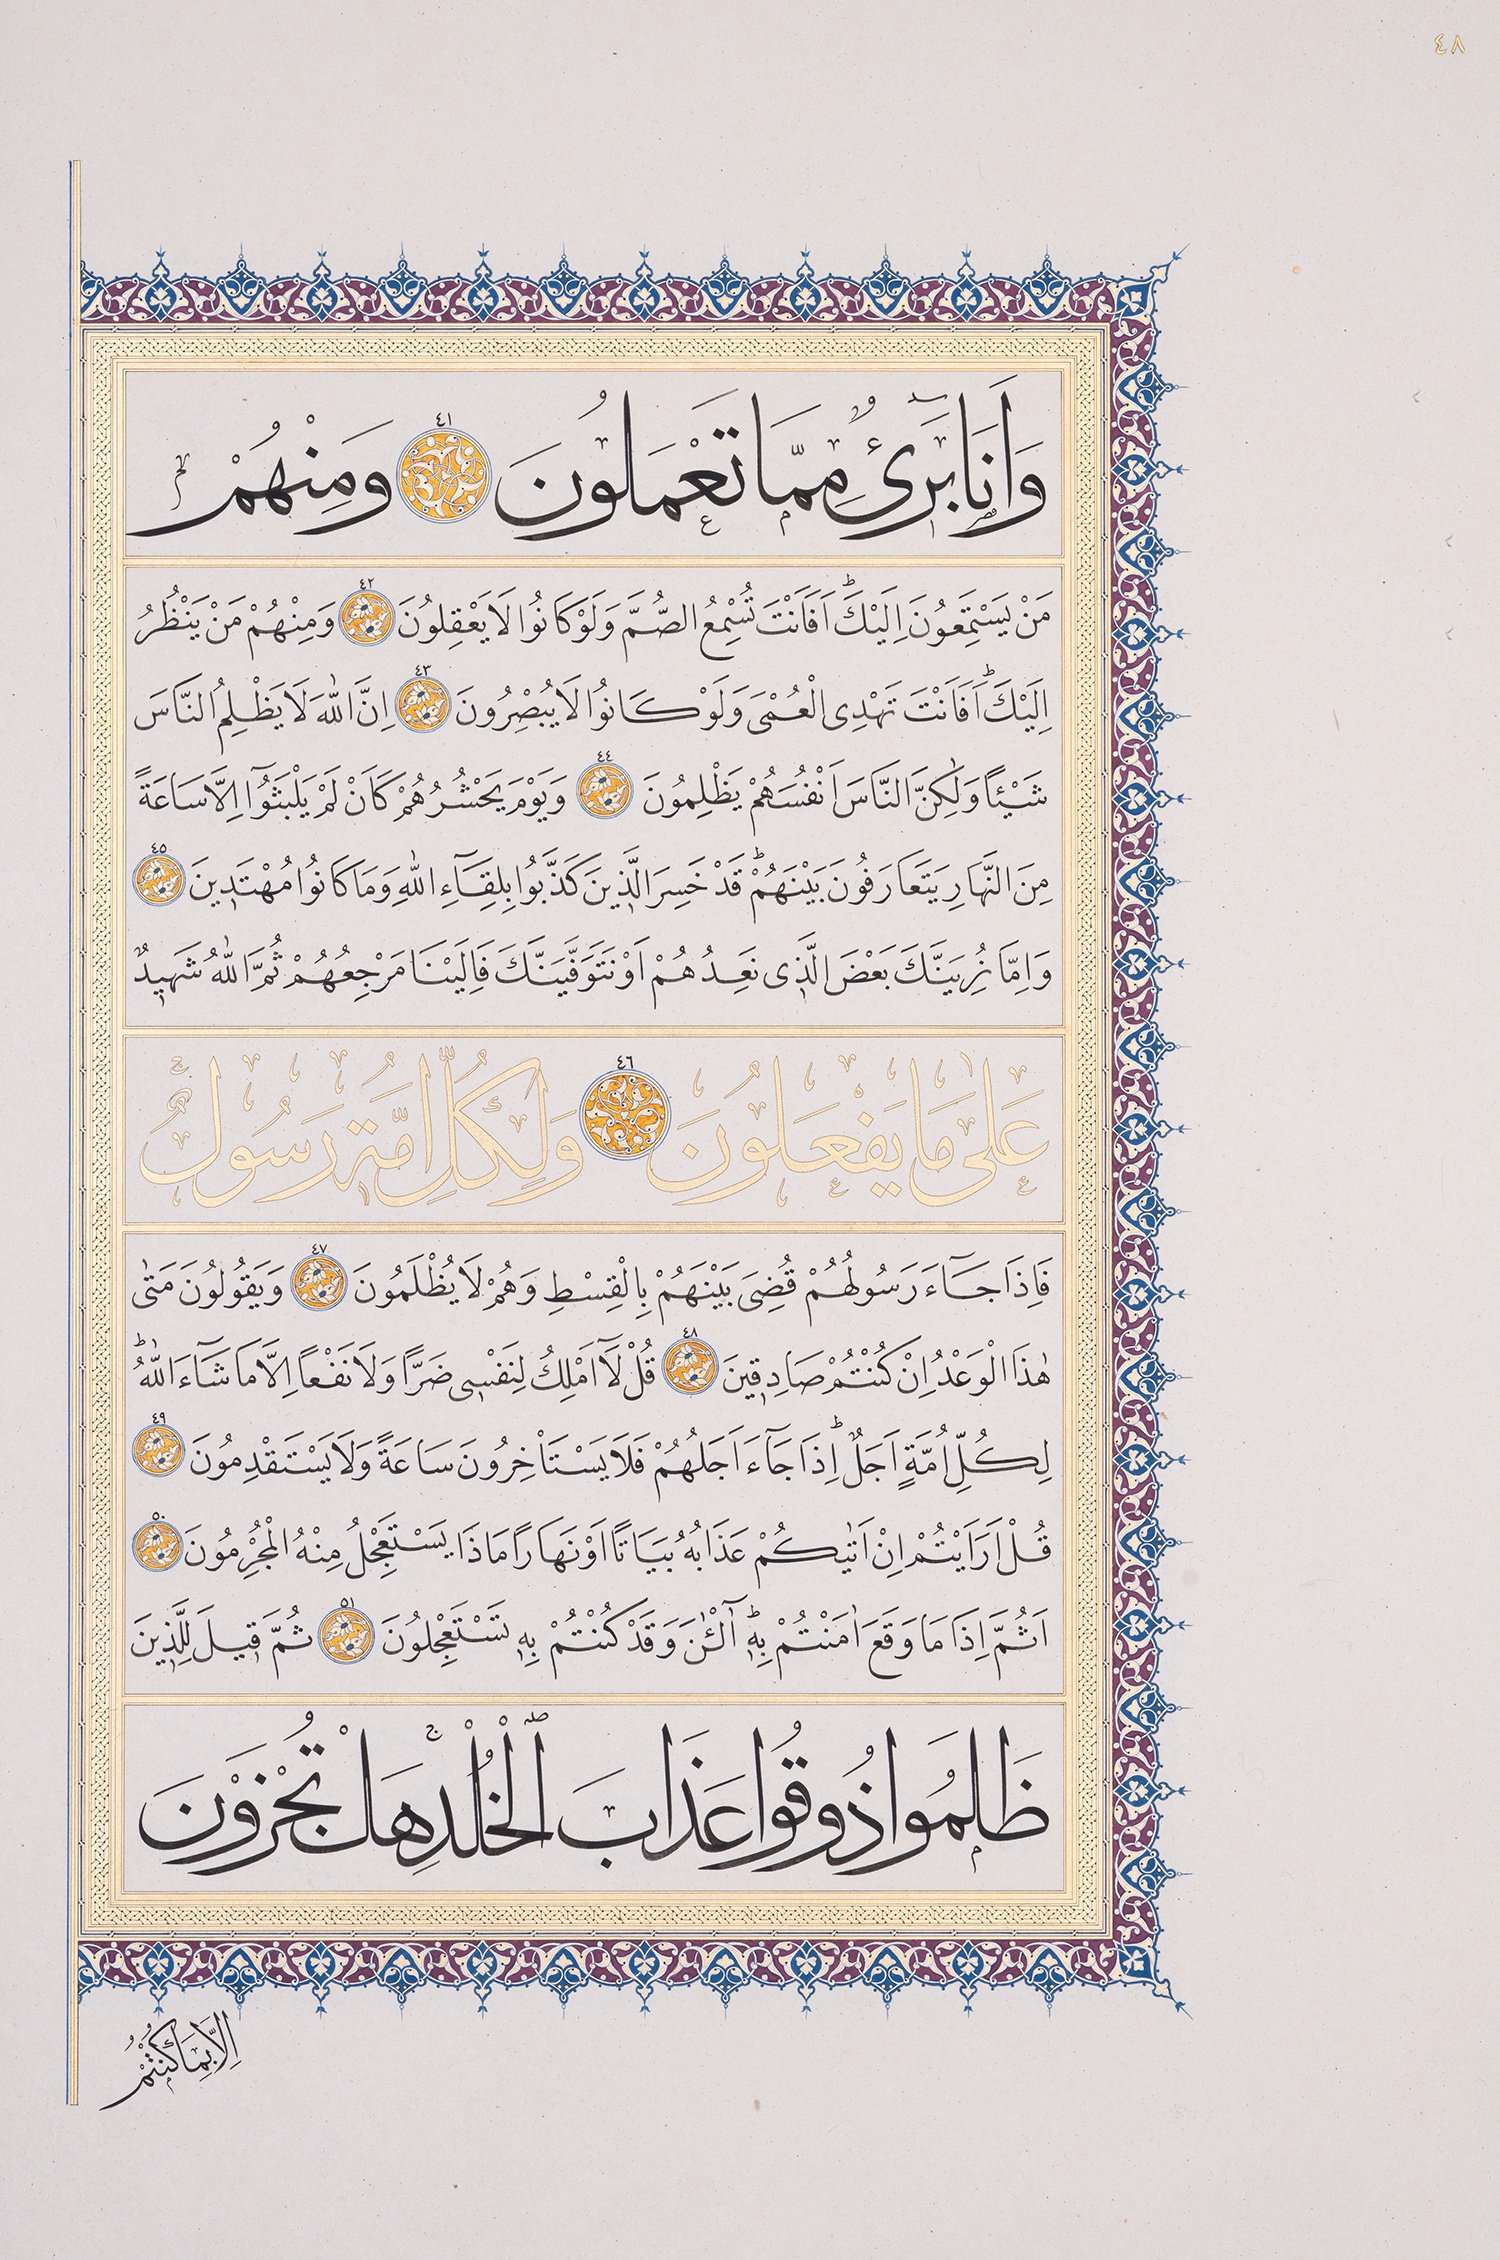 ٤٨
وَاَنَا۬ بَرٓئٌ مِمَّا تَعْمَلُونَ ٤١ وَمِنْهُمْ
مَنْ يَسْتَمِعُونَ اِلَيْكَۜ اَفَاَنْتَ تُسْمِعُ الصُّمَّ وَلَوْ كَانُوا لَا يَعْقِلُونَ ٤٢ وَمِنْهُمْ مَنْ يَنْظُرُ
اِلَيْكَۜ اَفَاَنْتَ تَهْدِى الْعُمْىَ وَلَوْ كَانُوا لَا يُبْصِرُونَ ٤٣ اِنَّ اللّٰهَ لَا يَظْلِمُ النَّاسَ
شَيْـًٔا وَلٰكِنَّ النَّاسَ اَنْفُسَهُمْ يَظْلِمُونَ ٤٤ وَيَوْمَ يَحْشُرُهُمْ كَاَنْ لَمْ يَلْبَثُٓوا اِلَّا سَاعَةً
مِنَ النَّهَارِ يَتَعَارَفُونَ بَيْنَهُمْۜ قَدْ خَسِرَ الَّذٖينَ كَذَّبُوا بِلِقَٓاءِ اللّٰهِ وَمَا كَانُوا مُهْتَدٖينَ ٤٥
وَاِمَّا نُرِيَنَّكَ بَعْضَ الَّذٖى نَعِدُهُمْ اَوْ نَتَوَفَّيَنَّكَ فَاِلَيْنَا مَرْجِعُهُمْ ثُمَّ اللّٰهُ شَهٖيدٌ
عَلٰى مَا يَفْعَلُونَ ٤٦ وَلِكُلِّ اُمَّةٍ رَسُولٌۚ
فَاِذَا جَٓاءَ رَسُولُهُمْ قُضِىَ بَيْنَهُمْ بِالْقِسْطِ وَهُمْ لَا يُظْلَمُونَ ٤٧ وَيَقُولُونَ مَتٰى
هٰذَا الْوَعْدُ اِنْ كُنْتُمْ صَادِقٖينَ ٤٨ قُلْ لَٓا اَمْلِكُ لِنَفْسٖى ضَرًّا وَلَا نَفْعًا اِلَّا مَا شَٓاءَ اللّٰهُۜ
لِكُلِّ اُمَّةٍ اَجَلٌۜ اِذَا جَٓاءَ اَجَلُهُمْ فَلَا يَسْتَاْخِرُونَ سَاعَةً وَلَا يَسْتَقْدِمُونَ ٤٩
قُلْ اَرَاَيْتُمْ اِنْ اَتٰيكُمْ عَذَابُهُ بَيَاتًا اَوْ نَهَارًا مَاذَا يَسْتَعْجِلُ مِنْهُ الْمُجْرِمُونَ ٥٠
اَثُمَّ اِذَا مَا وَقَعَ اٰمَنْتُمْ بِهٖۜ آٰلْـٰٔنَ وَقَدْ كُنْتُمْ بِهٖ تَسْتَعْجِلُونَ ٥١ ثُمَّ قٖيلَ لِلَّذٖينَ
ظَلَمُوا ذُوقُوا عَذَابَ الْخُلْدِۚ هَلْ تُجْزَوْنَ
اِلَّا بِمَا كُنْتُمْ